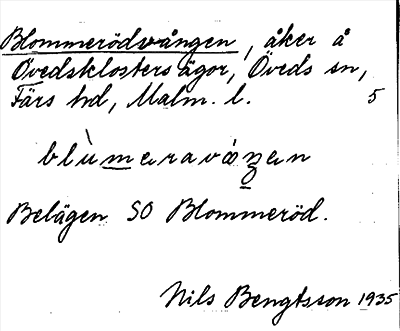 Blommerödsvången, åker å
Övedsklosters ägor, Öveds sn,
Färs hd, Malm. l. 5
Belägen SO Blommeröd.
Nils Bengtsson 1935